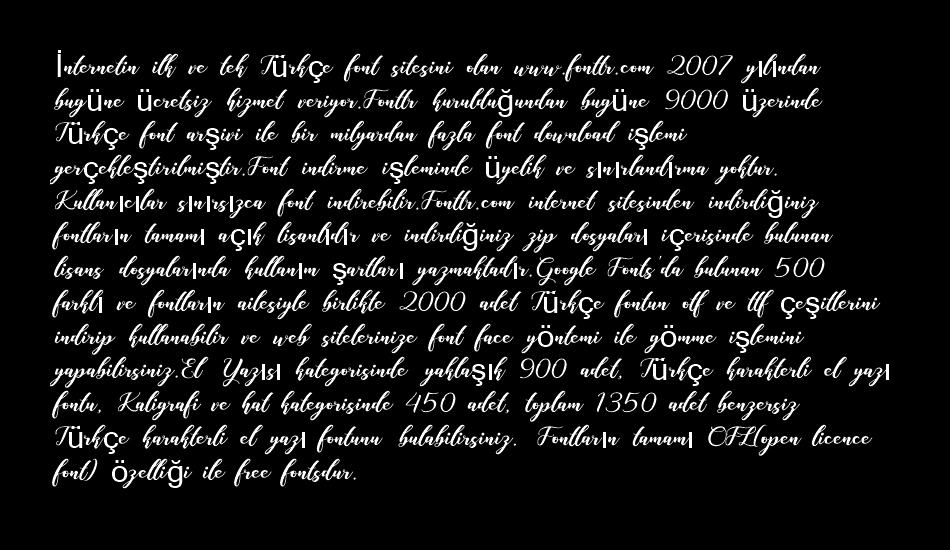 İnternetin ilk ve tek Türkçe font sitesini olan www.fonttr.com 2007 yılından
bugüne ücretsiz hizmet veriyor.Fonttr kurulduğundan bugüne 9000 üzerinde
Türkçe font arşivi ile bir milyardan fazla font download işlemi
gerçekleştirilmiştir.Font indirme işleminde üyelik ve sınırlandırma yoktur.
Kullanıcılar sınırsızca font indirebilir.Fonttr.com internet sitesinden indirdiğiniz
fontların tamamı açık lisanlıdır ve indirdiğiniz zip dosyaları içerisinde bulunan
lisans dosyalarında kullanım şartları yazmaktadır.Google Fonts'da bulunan 500
farklı ve fontların ailesiyle birlikte 2000 adet Türkçe fontun otf ve ttf çeşitlerini
indirip kullanabilir ve web sitelerinize font face yöntemi ile gömme işlemini
yapabilirsiniz.El Yazısı kategorisinde yaklaşık 900 adet, Türkçe karakterli el yazı
fontu, Kaligrafi ve hat kategorisinde 450 adet, toplam 1350 adet benzersiz
Türkçe karakterli el yazı fontunu bulabilirsiniz. Fontların tamamı OFL(open licence
font) özelliği ile free fontsdur.